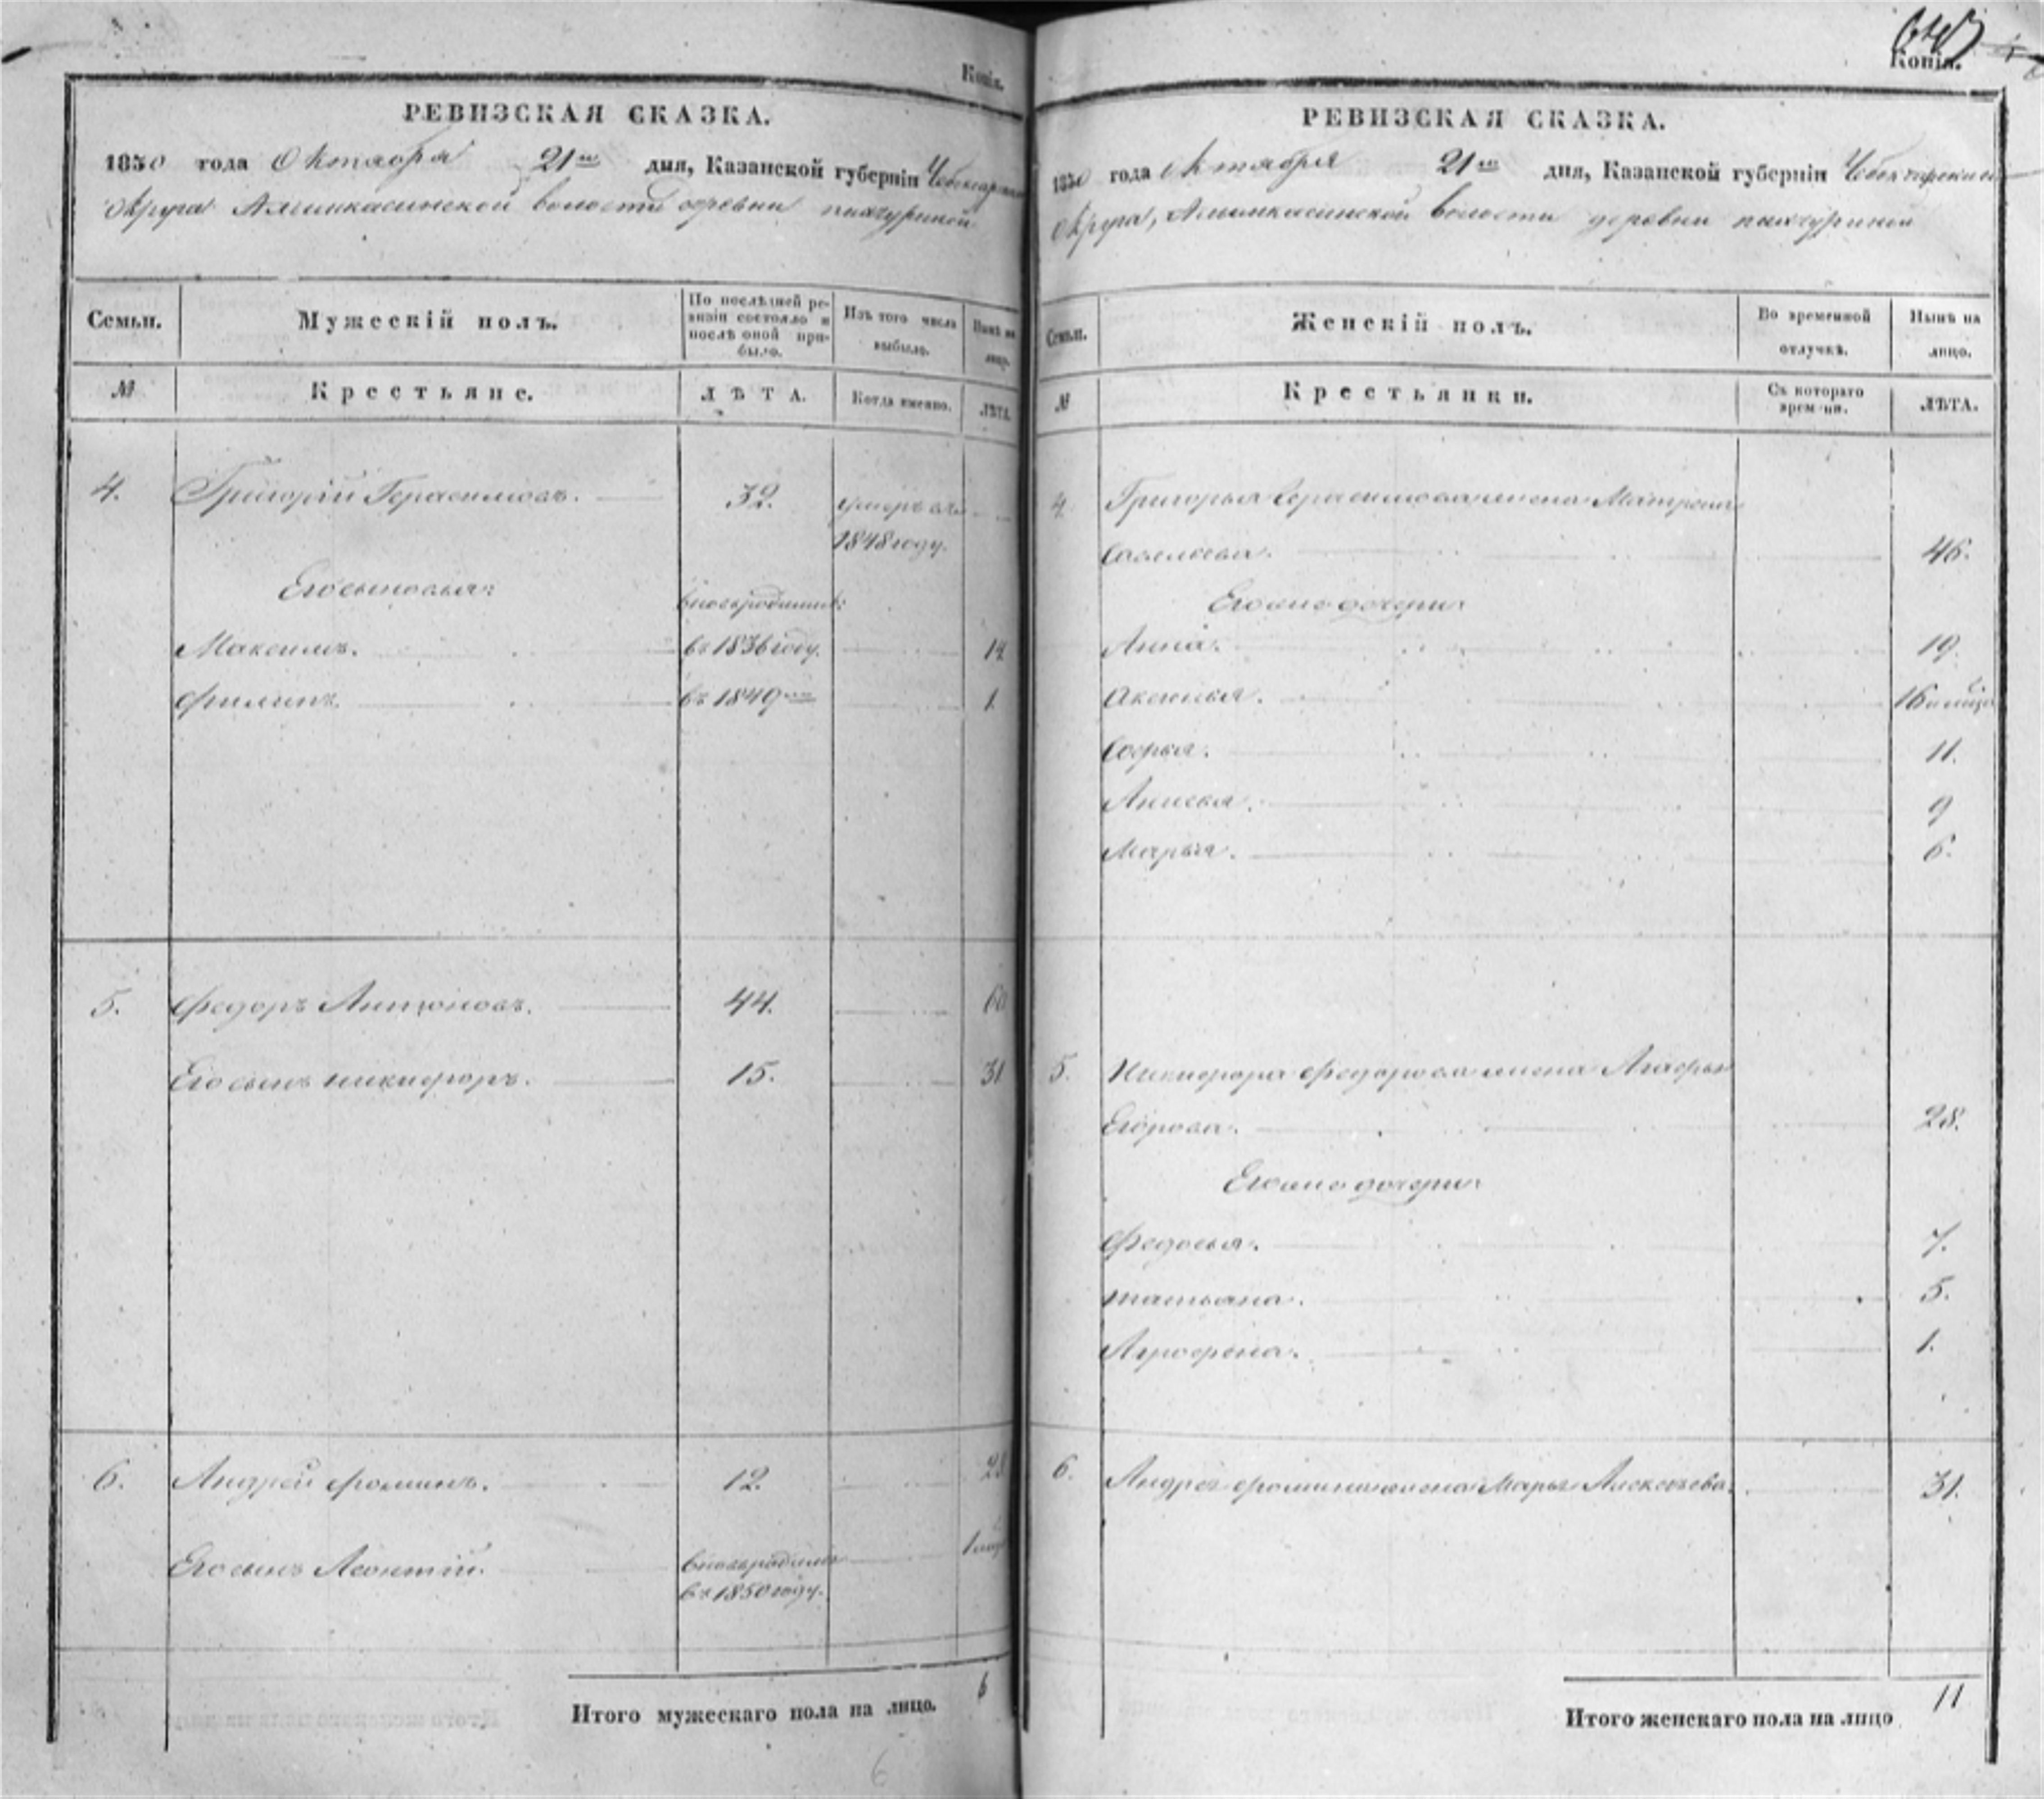 Копія.
РЕВИЗСКАЯ СКАЗКА.
1850 года Октября 21го дня, Казанской губерніи Чебоксарскаго
Округа Алымкасинской волости деревни пихчуриной
Семьи. Мужескій полъ. По послѣдней ревизіи состояло и послѣ оной прибыло. Изъ того числа выбыло. Нынѣ на лицо.
№ Крестьяне. ЛѢТА. Когда именно. ЛѢТА.
4. Григорій Герасимовъ. 32. умеръ въ
1848 году.
Его сыновья: вновьрожденные:
Максимъ. въ 1836 году. 14
Филипъ. въ 1849мъ 1.
5. Федоръ Антоновъ. 44. 60
Его сынъ никифоръ. 15. 31
6. Андрей Фоминъ. 12. 28
Его сынъ Леонтій. вновьрожденъ
въ 1850 году.
Итого мужескаго пола на лицо. 6
6
Копія.
РЕВИЗСКАЯ СКАЗКА.
1850 года Октября 21го дня, Казанской губерніи Чебоксарскаго
Округа, Алымкасинской волости деревни пихчуриной
Семьи. Женскій полъ. Во временной отлучкѣ. Нынѣ на лицо.
№ Крестьянки. Съ котораго времени. ЛѢТА.
4 Григорья Герасимова жена Матрена
Савельева. 46.
Его же дочери:
Анна. 19.
Аксинья. 16
Софья. 11.
Анисья. 9
Марья. 6.
5. Никифора Федорова жена Агафья
Егорова. 28.
Его же дочери:
Федосья. 7.
татьяна. 5.
Агрофена. 1.
6. Андрея Фомина жена Марья Алексѣева. 31.
Итого женскаго пола на лицо 11